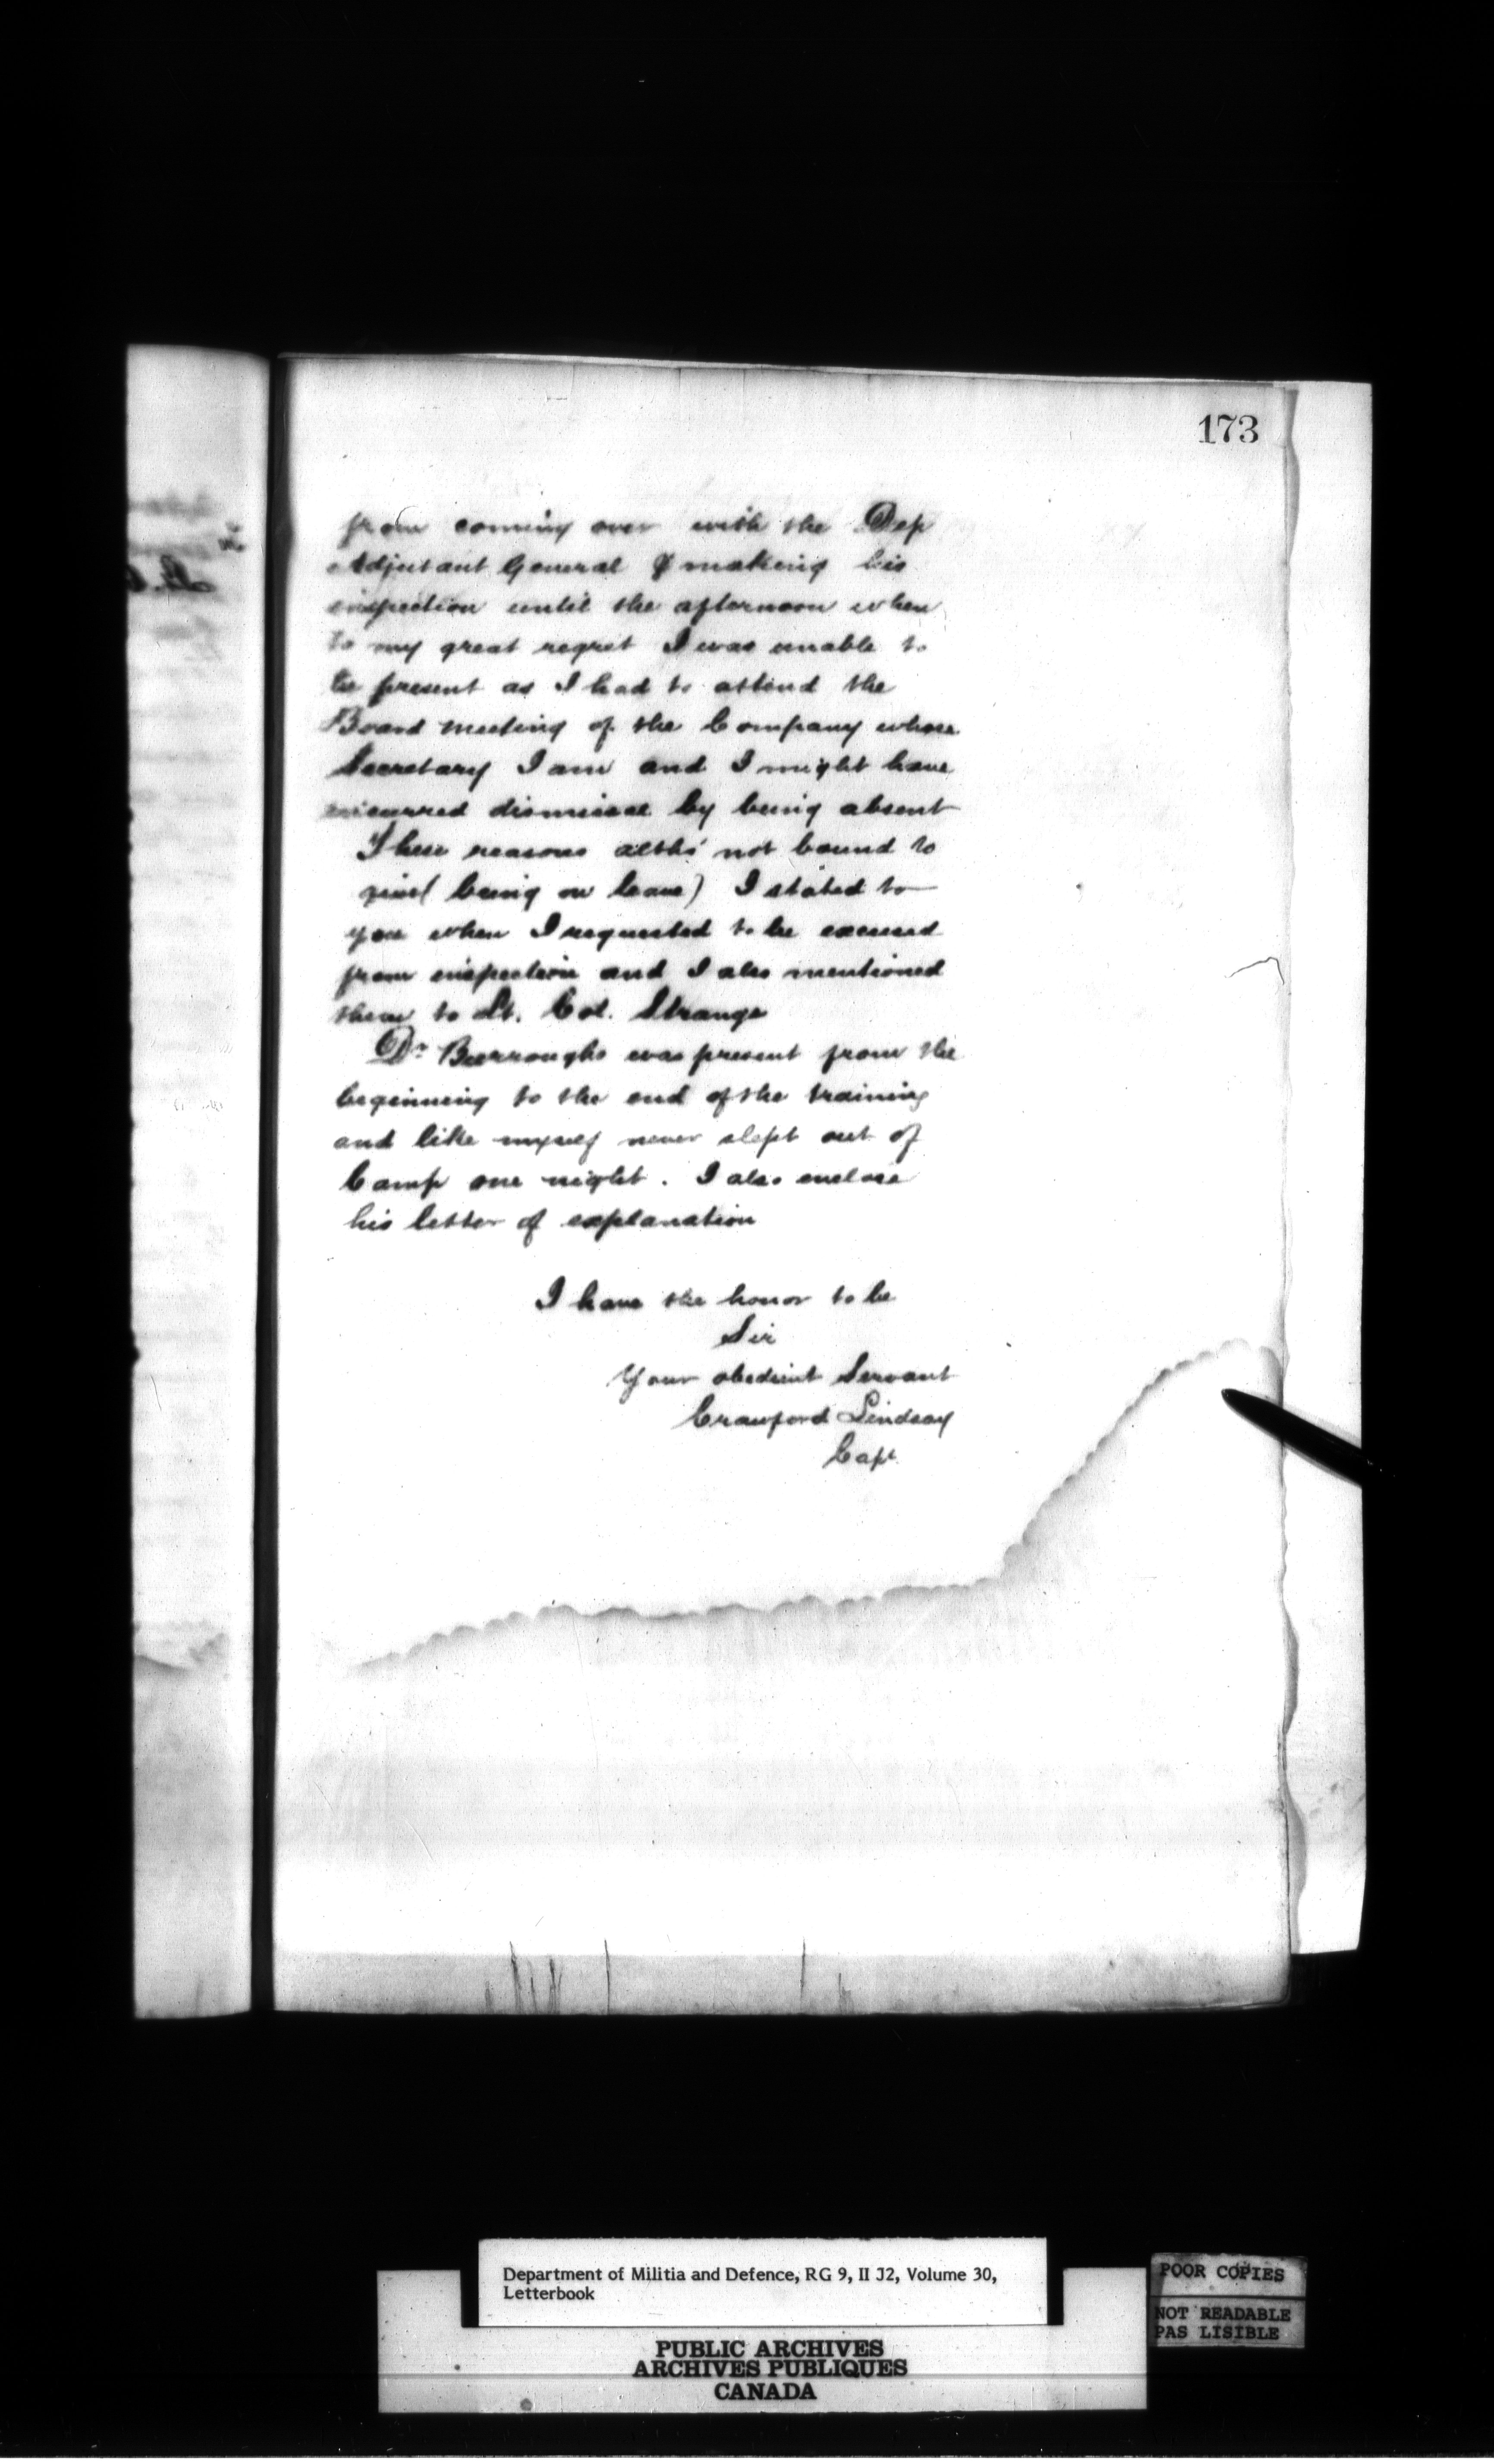 173
from coming over with the Dep
Adjutant General & making his
inspection until the afternoon when
to my great regret I was unable to
be present as I had to attend the
Board meeting of the Company whose
Secretary I am and I might have
incurred dismissal by being absent
These reasons altho' not bound to
give (being on leave) I stated to
you when I requested to be excused
from inspection and I also mentioned
them to Lt. Col. Strange
Dr Burroughs was present from the
beginning to the end of the training
and like myself never slept out of
Camp one night. I also enclose
his letter of explanation
I have the honor to be
Sir
Your obedient Servant
Crawford Lindsay
Capt.
Department of Militia and Defence, RG 9, II J2, Volume 30,
Letterbook
POOR COPIES
NOT READABLE
PAS LISIBLE
PUBLIC ARCHIVES
ARCHIVES PUBLIQUES
CANADA